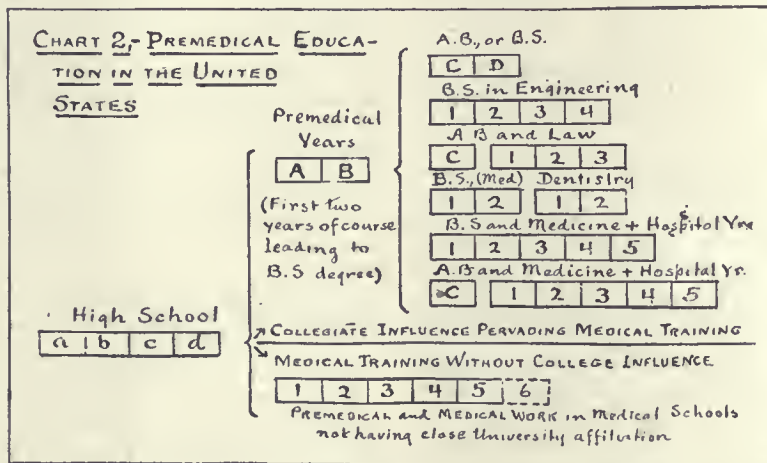 CHART 2,- PREMEDICAL EDUCA-
TION IN THE UNITED
STATES
High School
a b c d
Premedical
Years
A B
(First two
years of course
leading to
B.S degree)
A.B., or B.S.
C D
B.S. in Engineering
1 2 3 4
A B and Law
C 1 2 3
B.S., (Med) Dentistry
1 2 1 2
B.S and Medicine + Hospital Yrs
1 2 3 4 5
A.B and Medicine + Hospital Yr.
C 1 2 3 4 5
COLLEGIATE INFLUENCE PERVADING MEDICAL TRAINING
MEDICAL TRAINING WITHOUT COLLEGE INFLUENCE
1 2 3 4 5 6
PREMEDICAL and MEDICAL WORK in Medical Schools
not having close University affiliation